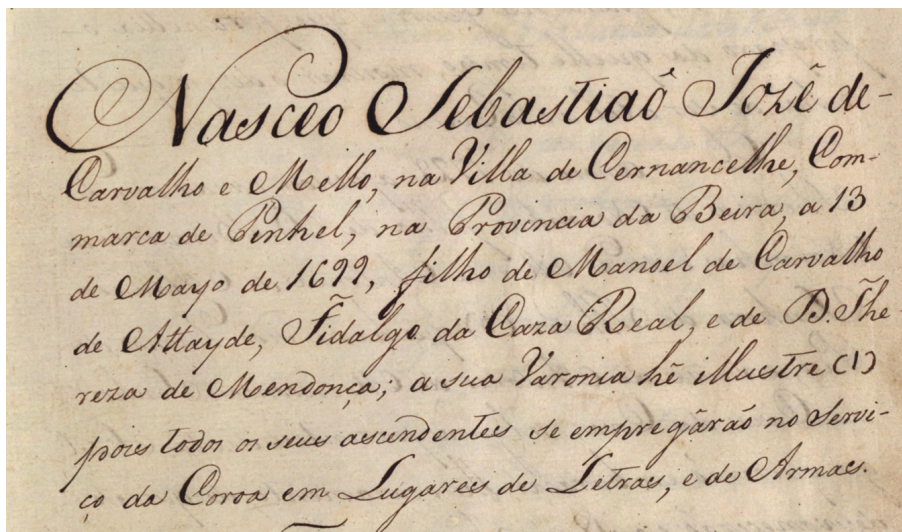 Nasceo Sebastiaõ Jozê de-
Carvalho e Mello, na Villa de Cernancelhe, Com-
marca de Pinhel, na Provincia da Beira, a 13
de Mayo de 1699, filho de Manoel de Carvalho
de Attayde, Fidalgo da Caza Real, e de D. The-
reza de Mendonça; a sua Varonia hê illustre (1)
pois todos os seus ascendentes se empregârão no Servi-
ço da Coroa em Lugares de Letras, e de Armas.